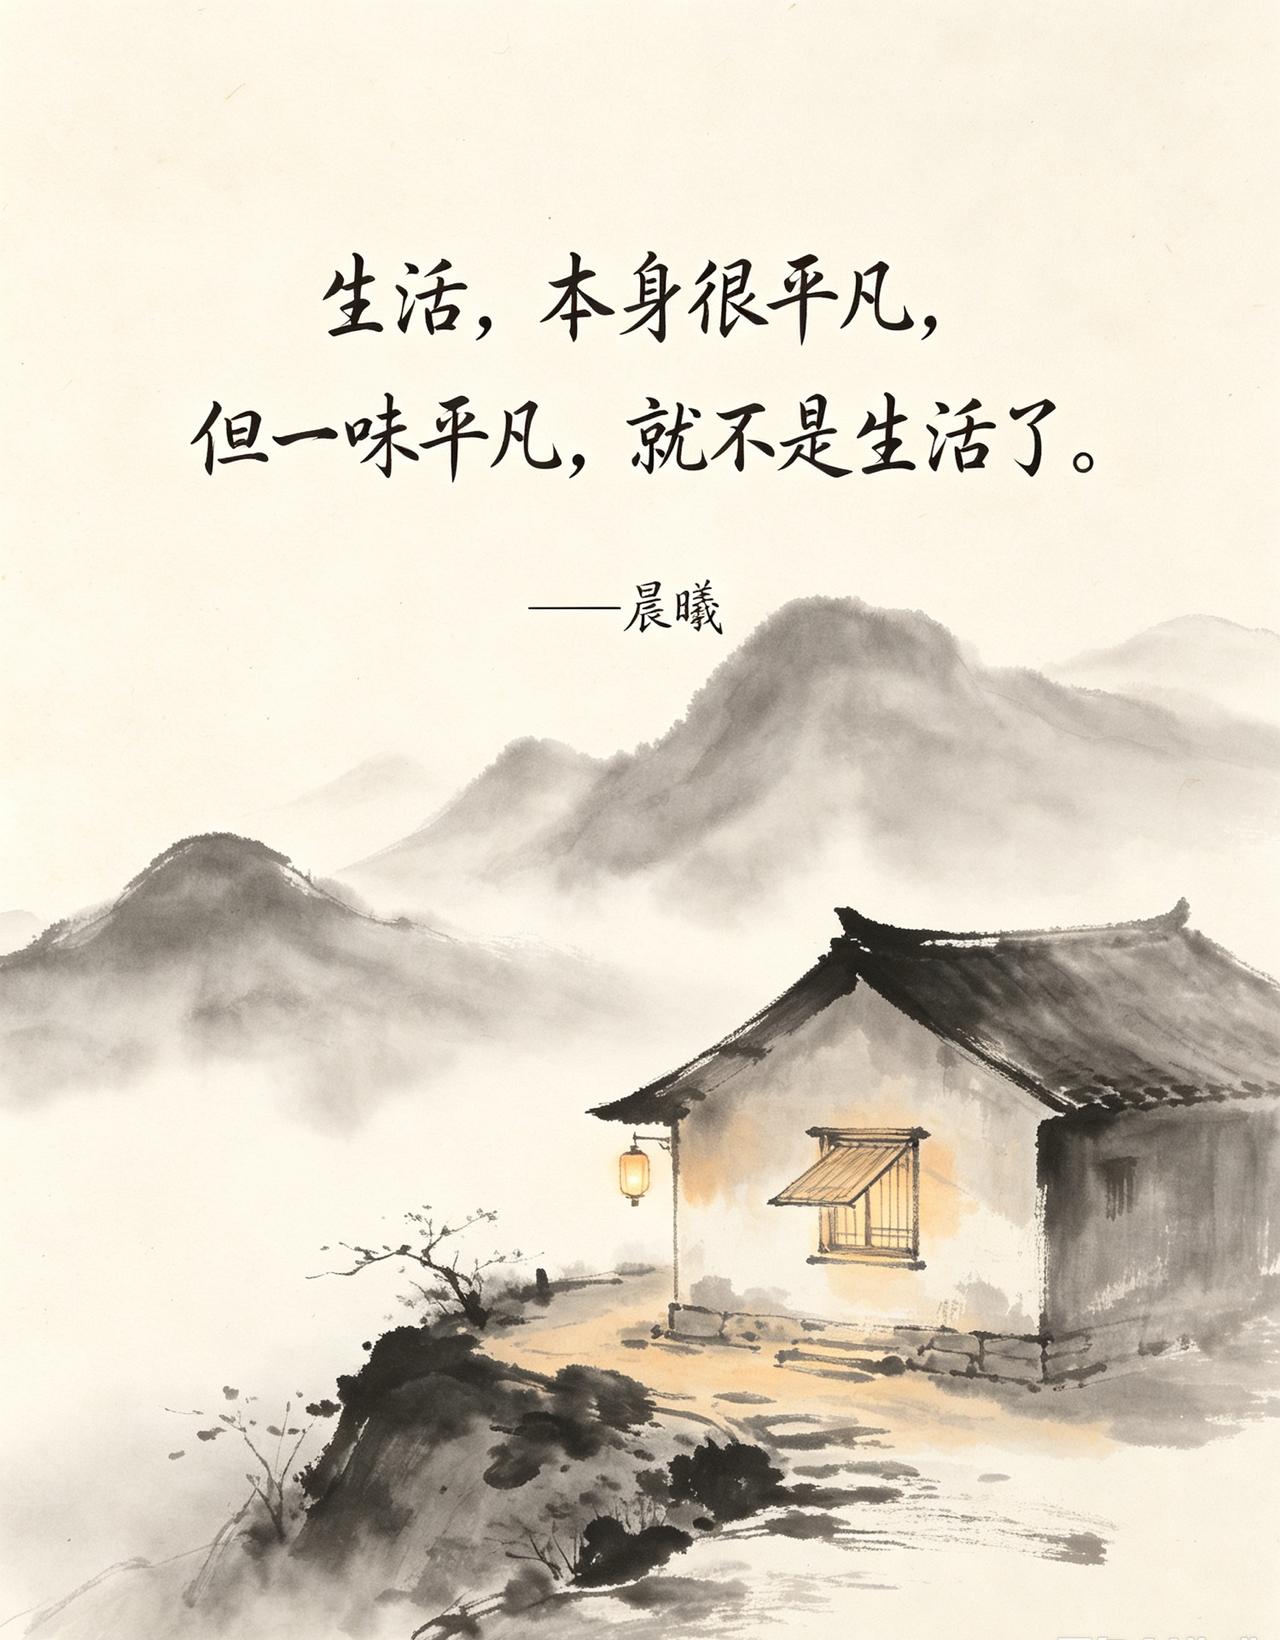 生活，本身很平凡，
但一味平凡，就不是生活了。
——晨曦